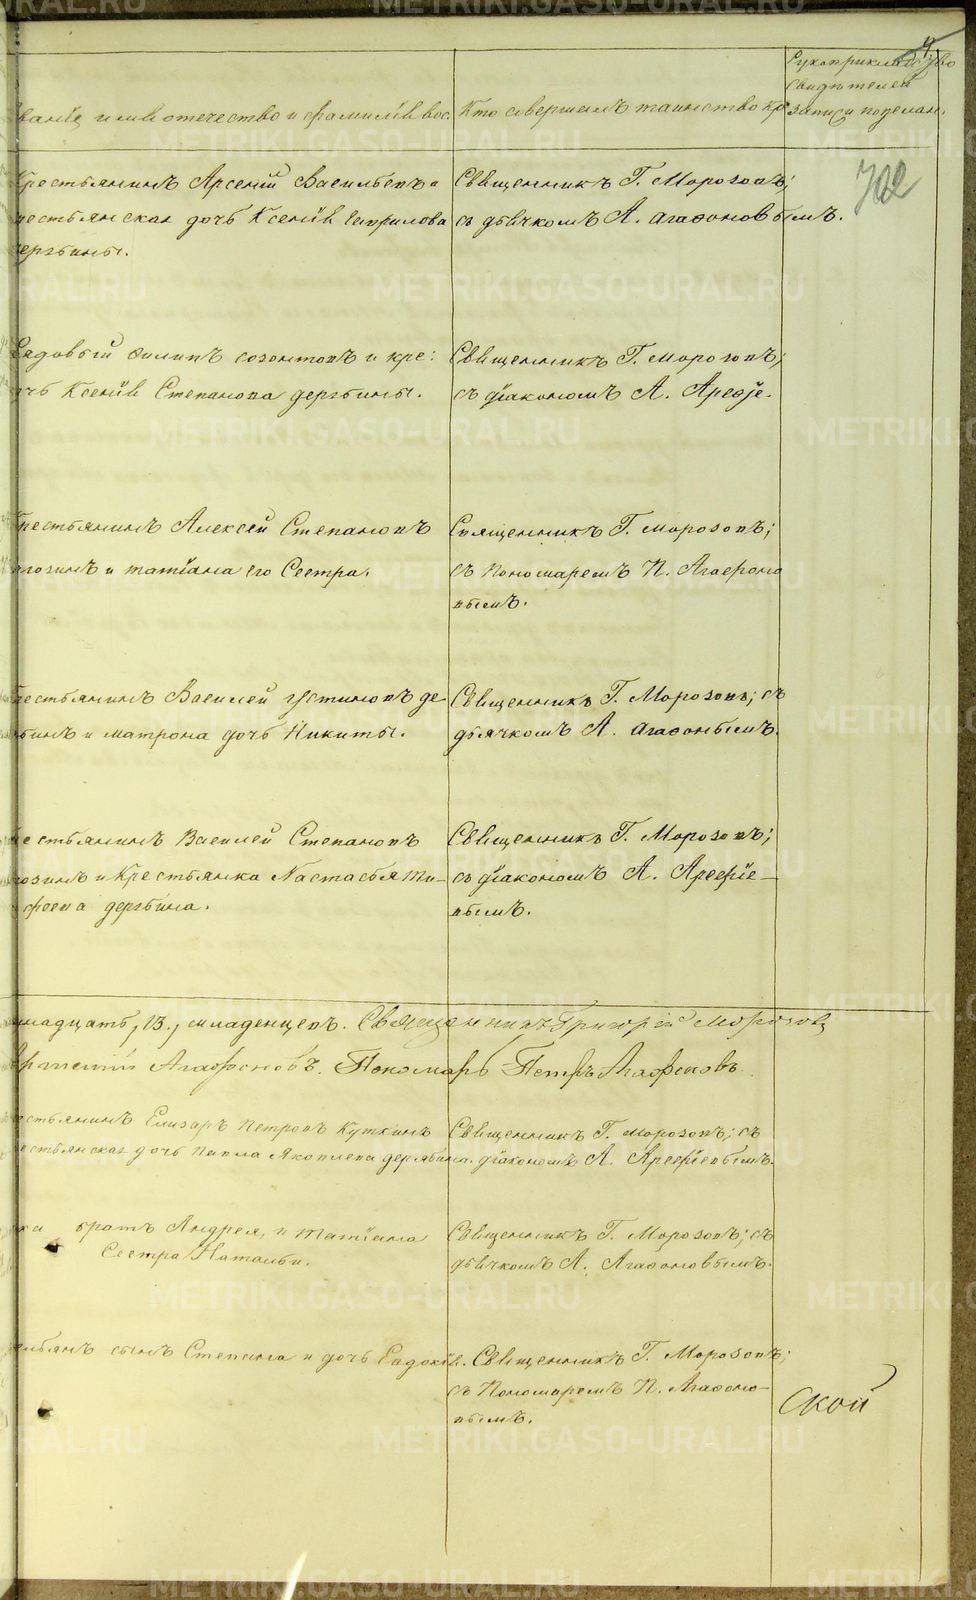 4
Рукоприкладство
свидѣтелей
записи по желан.
Званія имя отечество и фамилія вос.
Кто совершалъ таинство кр
702
Крестьянинъ Арсеній Васильевъ и
крестьянская дочь Ксенія Гаврилова
Дерябины.
Священникъ Г. Морозовъ;
съ дьячкомъ А. Агафоновымъ.
Рядовый Филипъ Созонтовъ и кре:
дочь Ксенія Степанова Дерябины.
Священникъ Г. Морозовъ;
съ діакономъ А. Арефье.
Крестьянинъ Алексей Степановъ
и татіана его Сестра.
Священникъ Г. Морозовъ;
съ Пономаремъ П. Агафоно
вымъ.
крестьянинъ Василей Устиновъ Де-
рябинъ и матрона дочь Никиты.
Священникъ Г. Морозовъ; съ
дьячкомъ А. Агафоновымъ.
крестьянинъ Василей Степановъ
и Крестьянка Настасья Ти-
мофеева Дерябина.
Священникъ Г. Морозовъ;
съ діакономъ А. Арефіе-
вымъ.
надцать, 13, младенцевъ. Священникъ Григорій Морозовъ
Агафоновъ. Пономарь Петръ Агафоновъ.
крестьянинъ Елизаръ Петровъ Куткинъ
крестьянская дочь Павла Яковлева Дерябина.
Священникъ Г. Морозовъ; съ
діакономъ А. Арефіевымъ.
братъ Андрея, и татіана
Сестра Натальи.
Священникъ Г. Морозовъ; съ
дьячкомъ А. Агафоновымъ.
сынъ Степана и дочь Евдокія.
Священникъ Г. Морозовъ;
съ Пономаремъ П. Агафоно-
вымъ.
ской
METRIKI.GASO-URAL.RU